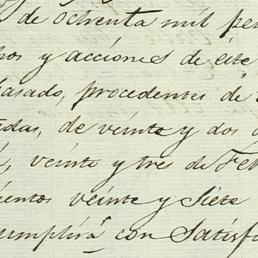 de ochenta mil pe
hos y acciones de este
basado, procedentes de
das, de veinte y dos
veinte y tres de Fe
ientos veinte y Siete
cumplirá con Satisf